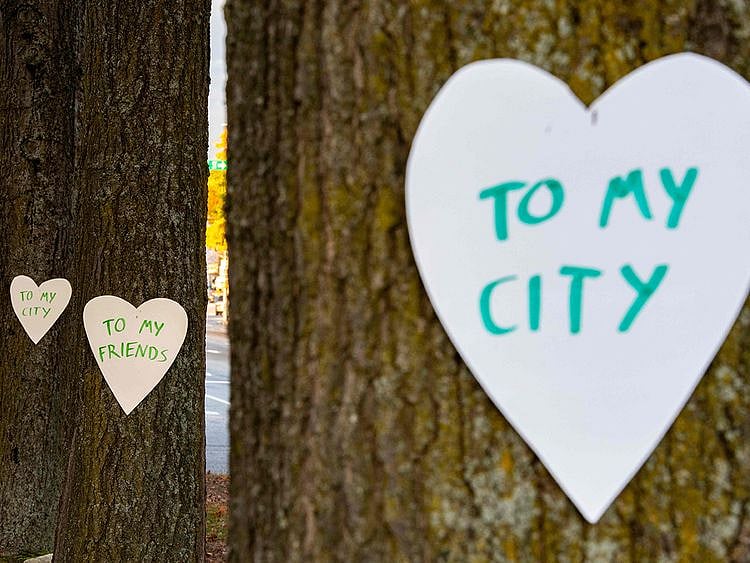 TO MY
CITY
TO MY
FRIENDS
TO MY
CITY